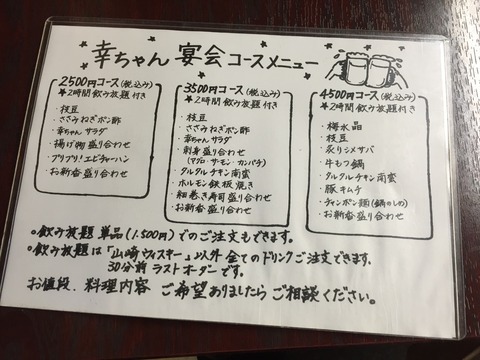 幸ちゃん 宴会コースメニュー
2500円コース(税込み)
*2時間飲み放題付き
・枝豆
・ささみねぎポン酢
・幸ちゃんサラダ
・揚げ物盛り合わせ
・プリプリ!エビチャーハン
・お新香盛り合わせ
3500円コース(税込み)
*2時間飲み放題付き
・枝豆
・ささみねぎポン酢
・幸ちゃんサラダ
・刺身盛り合わせ
(マグロ・サーモン・カンパチ)
・タルタルチキン南蛮
・ホルモン鉄板焼き
・細巻き寿司盛り合わせ
・お新香盛り合わせ
4500円コース(税込み)
*2時間飲み放題付き
・梅水晶
・枝豆
・炙りシメサバ
・牛もつ鍋
・タルタルチキン南蛮
・豚キムチ
・チャンポン麺(鍋のしめ)
・お新香盛り合わせ
○飲み放題単品(1,500円)でのご注文もできます。
○飲み放題は「山崎ウィスキー」以外全てのドリンクご注文できます。
30分前ラストオーダーです。
お値段、料理内容 ご希望ありましたらご相談ください。